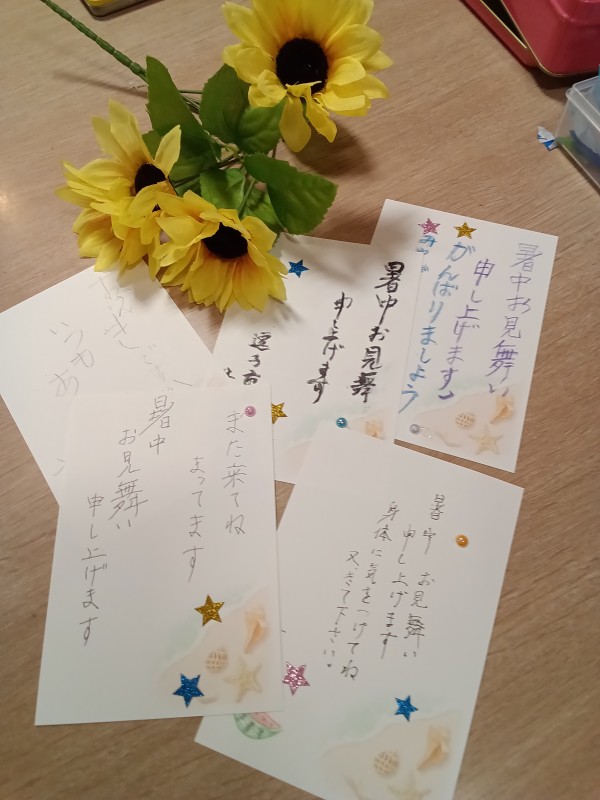 暑中お見舞い
申し上げます
がんばりましょう
暑中お見舞
申し上げます
また来てね
まってます
暑中
お見舞い
申し上げます
暑中お見舞い
申し上げます
身体に気をつけてね
又、きて下さい。